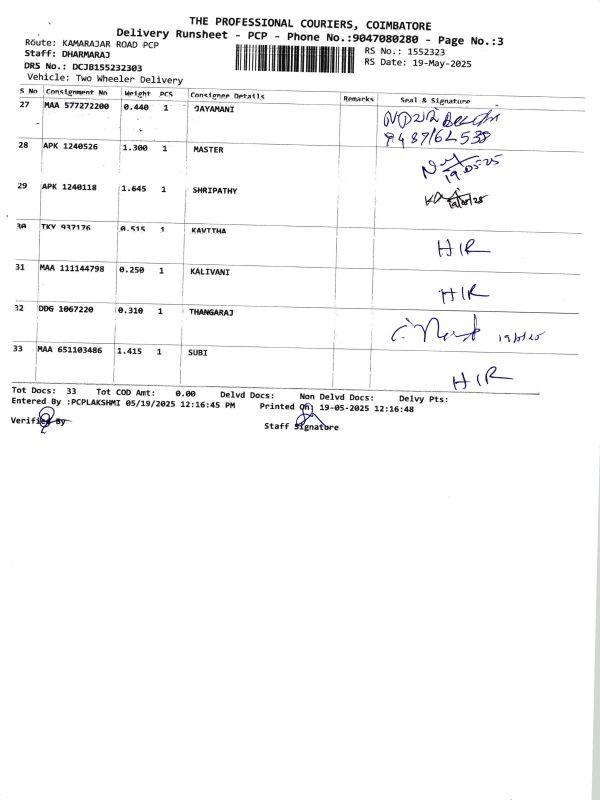 THE PROFESSIONAL COURIERS, COIMBATORE
Delivery Runsheet - PCP - Phone No.:9047080280 - Page No.:3
Route: KAMARAJAR ROAD PCP
RS No.: 1552323
Staff: DHARMARAJ
RS Date: 19-May-2025
DRS No.: DCJB155232303
Vehicle: Two Wheeler Delivery
S No Consignment No Weight PCS Consignee Details Remarks Seal & Signature
27 MAA 577272200 0.440 1 JAYAMANI
9487162538
28 APK 1240526 1.300 1 MASTER
19.05.25
29 APK 1240118 1.645 1 SHRIPATHY
30 TKY 937176 0.515 1 KAVITHA HIR
31 MAA 111144798 0.250 1 KALIVANI HIR
32 DDG 1067220 0.310 1 THANGARAJ 19/5/25
33 MAA 651103486 1.415 1 SUBI HIR
Tot Docs: 33 Tot COD Amt: 0.00 Delvd Docs: Non Delvd Docs: Delvy Pts:
Entered By :PCPLAKSHMI 05/19/2025 12:16:45 PM Printed On: 19-05-2025 12:16:48
Verified By Staff Signature